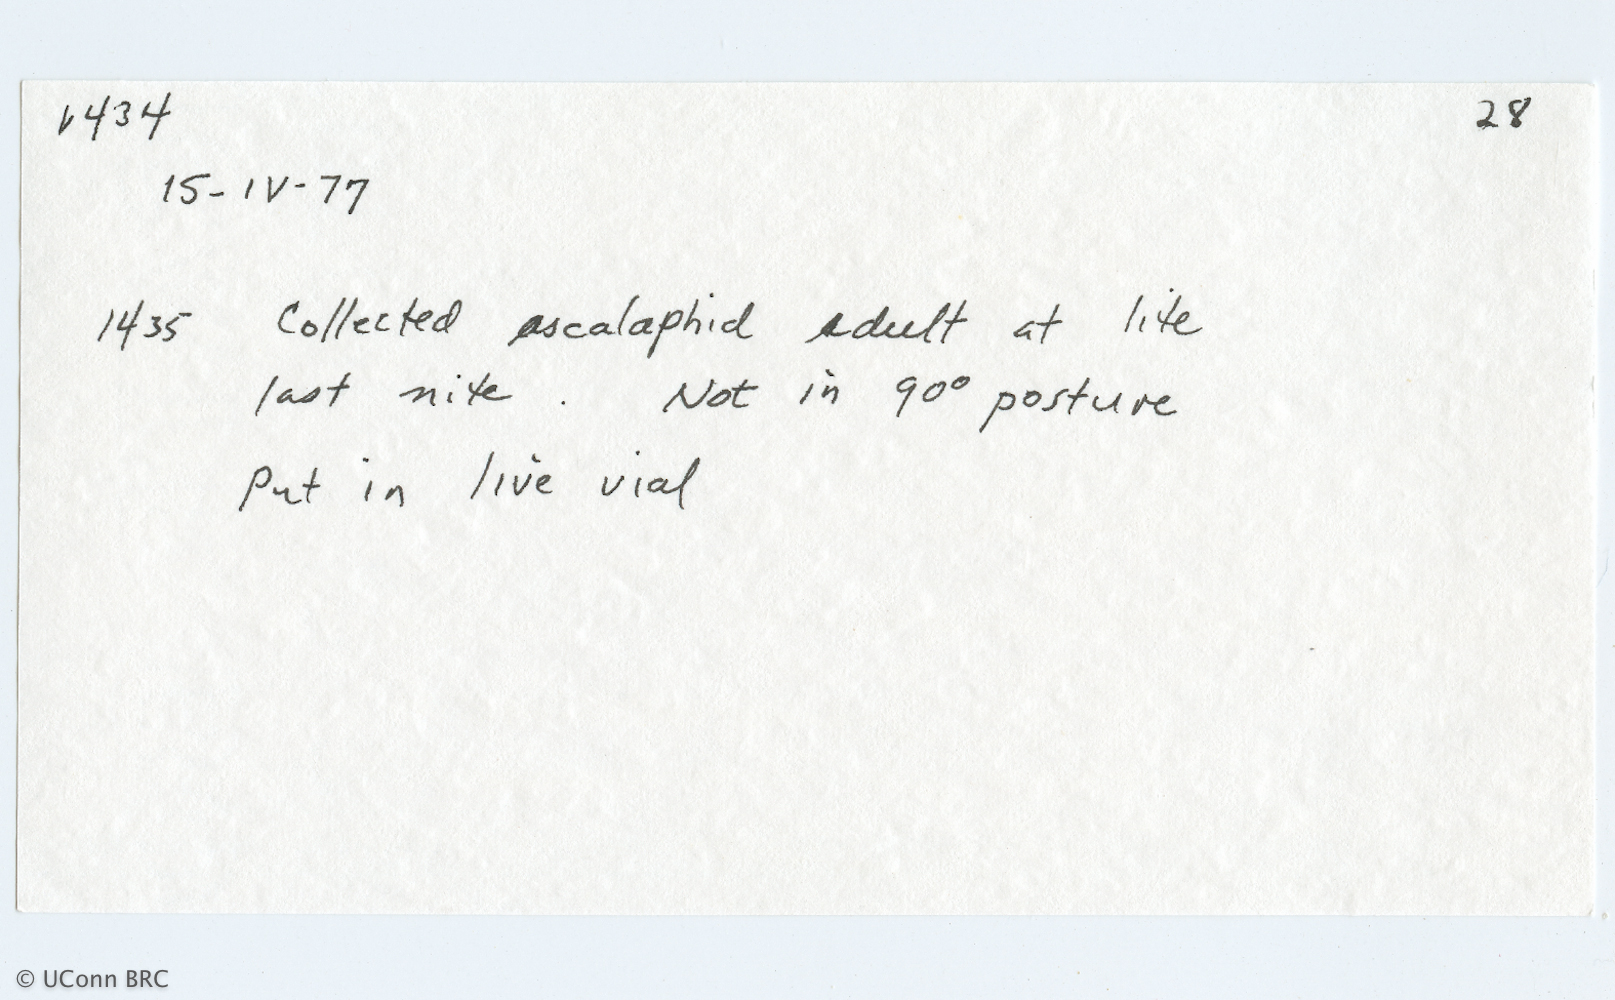 1434 28
15-IV-77
1435 Collected ascalaphid adult at lite
last nite. Not in 90° posture
Put in live vial
© UConn BRC